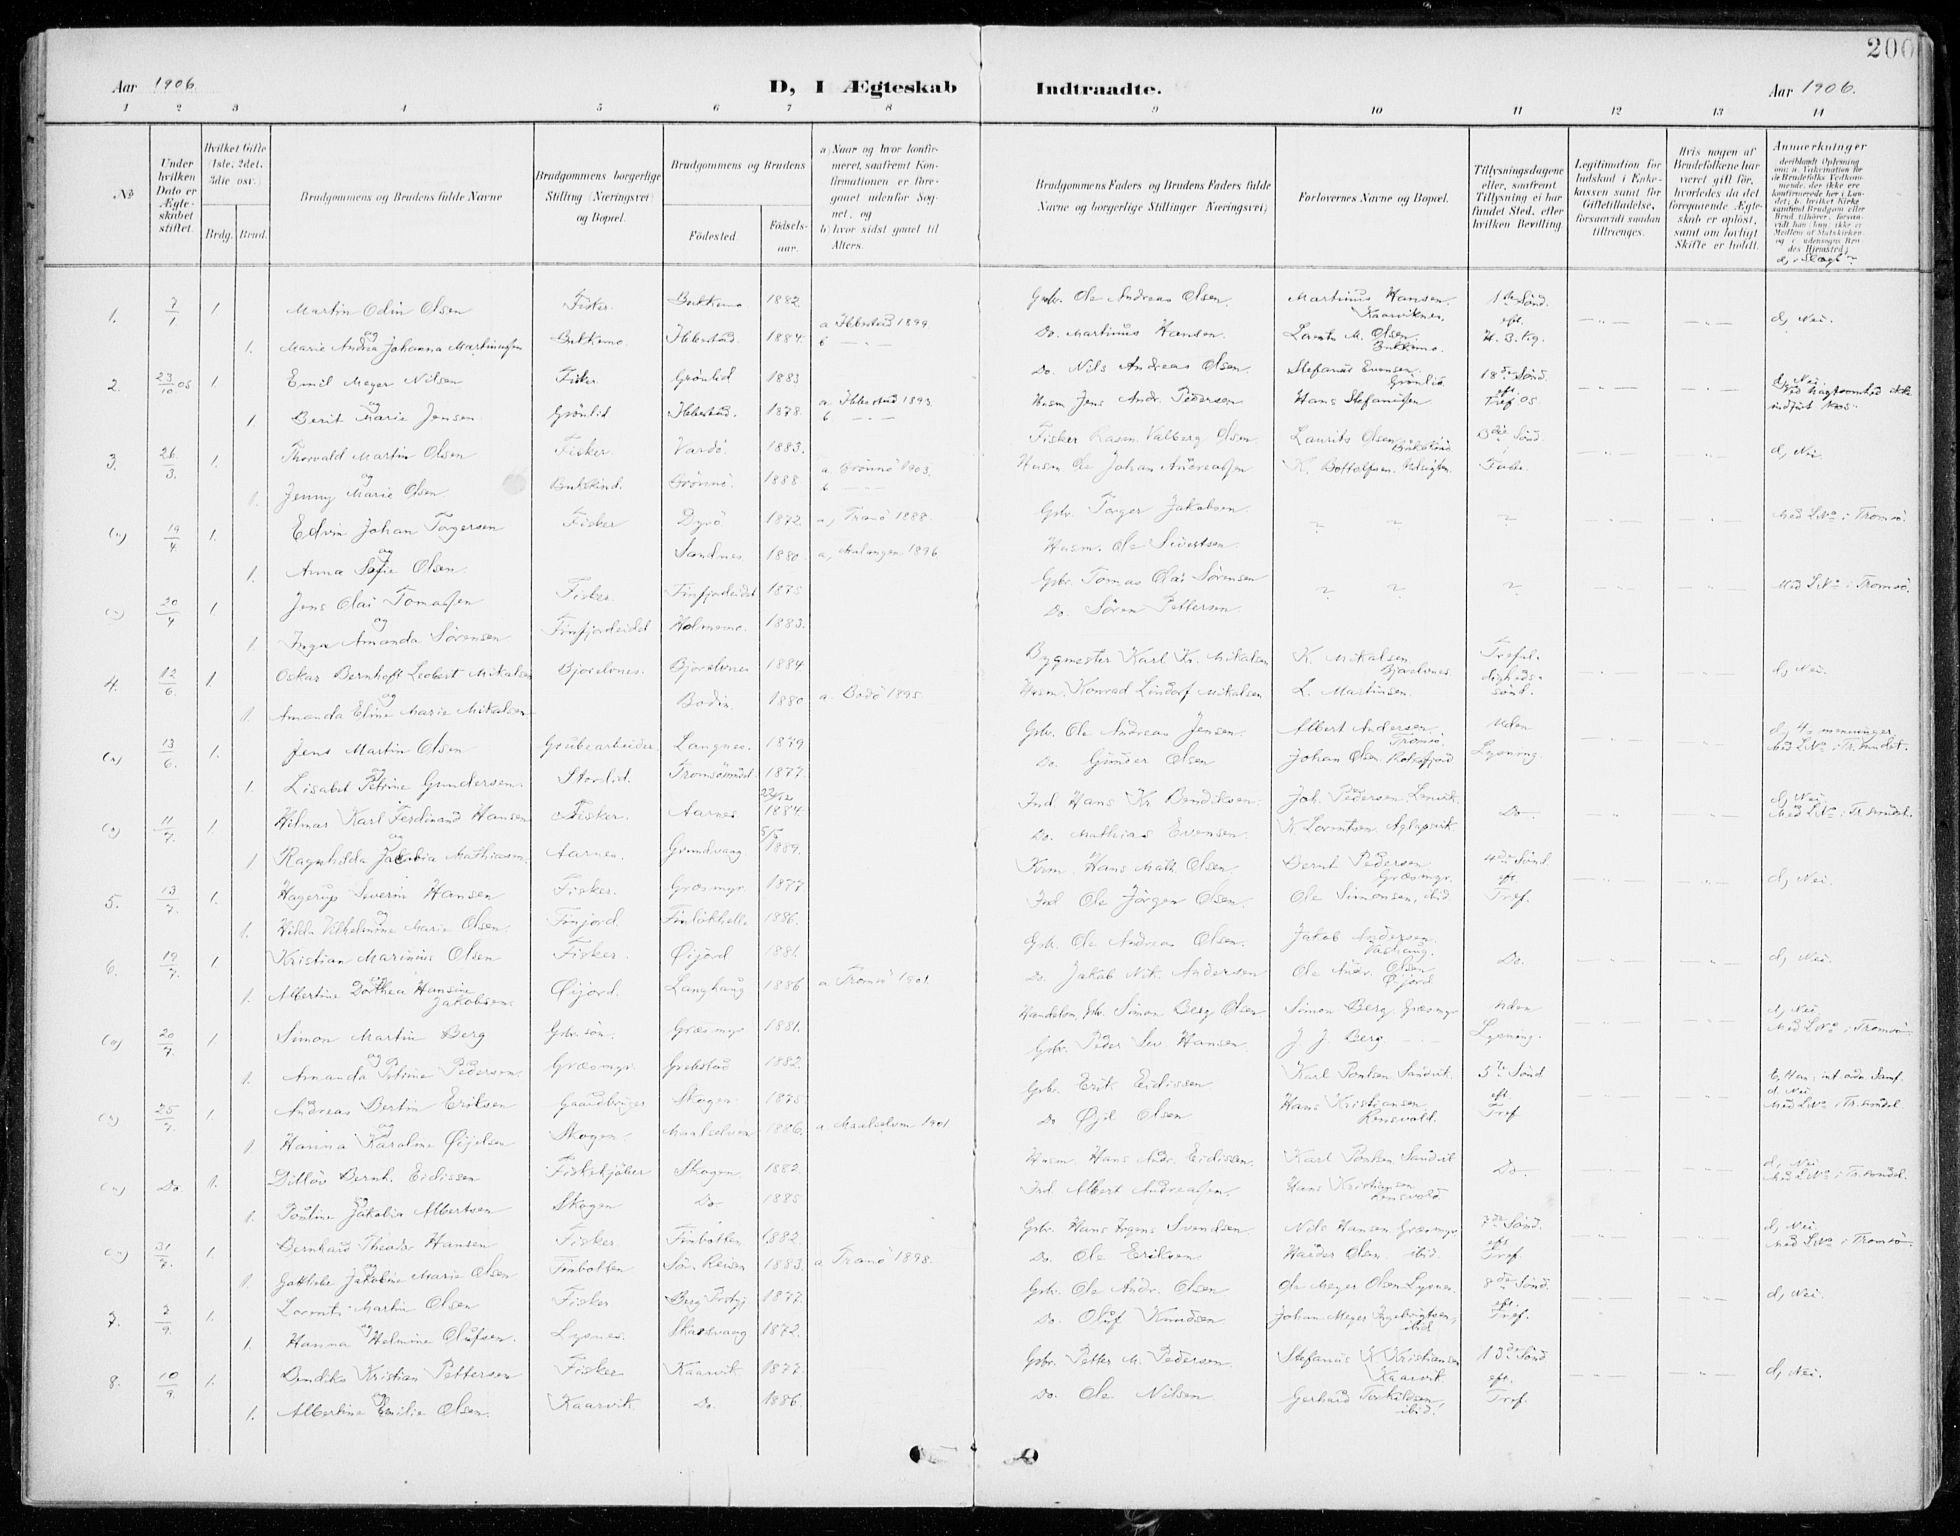 200
Aar 1906
D, I Ægteskab
Indtraadte.
Aar 1906.
1 2 3 4 5 6 7 8 9 10 11 12 13 14
No
Under hvilken Dato er Ægteskabet stiftet.
Hvilket Gifte (1ste, 2det, 3die osv.)
Brdg. Brud.
Brudgommens og Brudens fulde Navne
Brudgommens borgerlige Stilling (Næringsvei) og Bopæl.
Brudgommens og Brudens
Fødested. Fødselsaar.
a) Naar og hvor konfirmeret, saafremt Konfirmationen er foregaaet udenfor Sognet, og
b) hvor sidst gaaet til Alters.
Brudgommens Faders og Brudens Faders fulde Navne og borgerlige Stillinger (Næringsvei)
Forlovernes Navne og Bopæl.
Tillysningsdagene eller, saafremt Tillysning ei har fundet Sted, efter hvilken Bevilling.
Legitimation for Indskud i Enkekassen samt for Giftetilladelse, forsaavidt saadan tiltrænges.
Hvis nogen af Brudefolkene har været gift før, hvorledes da det foregaaende Ægteskab er opløst, samt om lovligt Skifte er holdt.
Anmerkninger
1. 7/1 1. Martin Odin Olsen Fisker. Bukkemo 1882 Gbr. Ole Andreas Olsen. Martinus Hansen. Kaarviknes. 1ste Sønd. eft. H. 3. Kg. d, Nei.
og
1. Marie Andrea Johanna Martinussen Bukkemo Ibbestad. 1884. a Ibbestad 1899 b Do. Martinus Hansen. Lorentz M. Olsen. Bukkemo.
2. 23/10 05 1. Emil Meyer Nilsen Fisker. Grønlid 1883 Do. Nils Andreas Olsen. Stefanus Evensen. Grønlid. 18de Sønd. eft Tref. 05 d, Nei
og
1. Berit Marie Jensen. Grønlid Ibbestad. 1878. a. Ibbestad 1893. b Husm Jens Andr. Pedersen Hans Stefanussen
3. 26/3. 1. Thorvald Martin Olsen Fisker. Vardø. 1883. Fisker Rasm. Valberg Olsen Laurits Olsen Bukskind 3die Sønd. i Faste. d, Nei.
og
1. Jenny Marie Olsen Bukskind. Grønnø. 1888 a. Grønnø 1903. b Husm Ole Johan Andreassen K. Bottolfsen.
(u) 19/4 1. Edvin Johan Torgersen Fisker Dyrø 1872. a, Tranø 1888. Gbr. Torger Jakobsen Med L.No i Tromsø.
og
1. Anna Sofie Olsen. Sandnes 1880 a, Malangen 1896 Husm. Ole Sivertsen.
(u) 20/4 1. Jens Olai Tomassen Fisker. Finfjordeidet 1875 Gbr. Tomas Olai Sørensen Med L.No i Tromsø.
og
1. Inga Amanda Sørensen Finfjordeidet Holmemo. 1883. Do. Søren Pettersen.
4. 12/6. 1. Oskar Bernhoft Leobert Mikalsen Bjorelvnes. Bjorelvnes 1884 Bygmester Karl Kr. Mikalsen K. Mikalsen. Bjorelvnes Trefoldighedssønd. d, Nei.
og
1. Amanda Eline Marie Mikalsen Bodin. 1880 a. Bodø 1895. Husm. Konrad Lindorf Mikalsen L. Martinsen.
(u) 13/6. 1. Jens Martin Olsen Grubearbeider. Langnes. 1879 Gbr. Ole Andreas Jensen. Albert Andersen. Tromsø. Uden Lysning. d, 4 menninger. Med L.No i Tr.sundet.
og
1. Lisabet Petrine Gundersen Stordlid. Tromsøsund. 1877. Do. Gunder Olsen Johan Olsen
(u) 11/7. 1. Hilmar Karl Ferdinand Hansen Fisker. Aarnes. 23/12 1884. Ind. Hans Kr Bendiksen. Joh. Pedersen. Lenvik. Do. d, Nei Med L.No i Tr.sundet.
og
1 Ragnhilda Jakobia Mathiasen Aarnes. Grundvaag 5/5 1889. Do. Mathias Evensen. K Lorentsen. Aglapsvik.
5. 13/7. 1. Hagerup Severin Hansen Fisker. Græsmyr. 1877 Kvm. Hans Math. Olsen. Bernt Pedersen Græsmyr. 4de Sønd. eft Tref. d, Nei.
og
1. Hilda Vilhelmine Marie Olsen. Finjord. 1886. Ind Ole Jørgen Olsen. Ole Simonsen, ibid
6. 19/7. 1. Kristian Marinius Olsen Fisker. Øijord 1881. Gbr. Ole Andreas Olsen. Jakob Andersen. Do. d, Nei.
og
1. Albertine Dorthea Hansine Jakobsen. Øijord. Langhaug 1886 a Tromsø 1901. Do. Jakob Nik. Andersen Ole Andr. Olsen Øijord
(u) 20/7. 1 Simon Martin Berg Gbr. søn. Græsmyr 1881. Handelsm, Gbr. Simon Berg Olsen Simon Berg. Græsmyr Uden Lysning. d, Nei Med L.No i Tromsø.
og
1. Amanda Petrine Pedersen. Græsmyr. Grebstad 1882. Gbr. Peder Sev. Hansen. J. J. Berg
(u) 25/7. 1 Andreas Bertin Eriksen Gaardbruger Skogen 1875 Gbr. Erik Eidissen Karl Pontsen Sandvik. 5te Sønd eft Tref d. Nei Med L.No i Tr.sundet.
og
1 Hanna Karoline Øijelsen Skogen. Maalselven 1886. a. Maalselven 1901 Do Øjel Olsen Hans Kristiansen Rensvold.
(u) Do 1. Ditløv Bernh. Eidissen Fiskekjøber Skogen 1882. Husm. Hans Andr. Eidissen. Karl Pontsen. Sandvik Do. d, Nei Med L.No i Tr.sundet.
og
1. Pouline Jakobie Albertsen Skogen Do 1885 Ind. Albert Andreassen. Hans Kristiansen Rensvold
(u) 31/7. 1 Bernhard Theodor Hansen Fisker. Finbotten 1882. Gbr. Hans Jrgens Svendsen Nils Hansen Græsmyr 7de Sønd. eft Tref d, Nei. Med L.No i Tromsø.
og
1. Jakobine Marie Olsen Finbotten Sør Reisen 1883. a Tranø 1898. Do. Ole Eriksen. Haider Olsen. ibid.
7. 7/9. 1. Lorents Martin Olsen Fisker 1877. Gbr. Ole Andr. Olsen Ole Meyer Olsen Lysnes 8de Sønd. eft. Tref. d, Nei.
og
1. Hanna Helmine Olufsen. Lysnes. Skarsvaag 1872. Do. Oluf Knudsen Johan Meyer Ingebrigtsen, ibid
8. 10/9. 1. Bendiks Kristian Pettersen Fisker Kaarvik 1877 Gbr. Petter M. Pedersen. Stefanus K Kristiansen Kaarvik. 13de Sønd. eft. Tref. d, Nei.
og
1. Albertine Emilie Olsen. Kaarvik. Do. 1886. Do. Ole Nilsen. Gerhard Torkildsen, ibid.